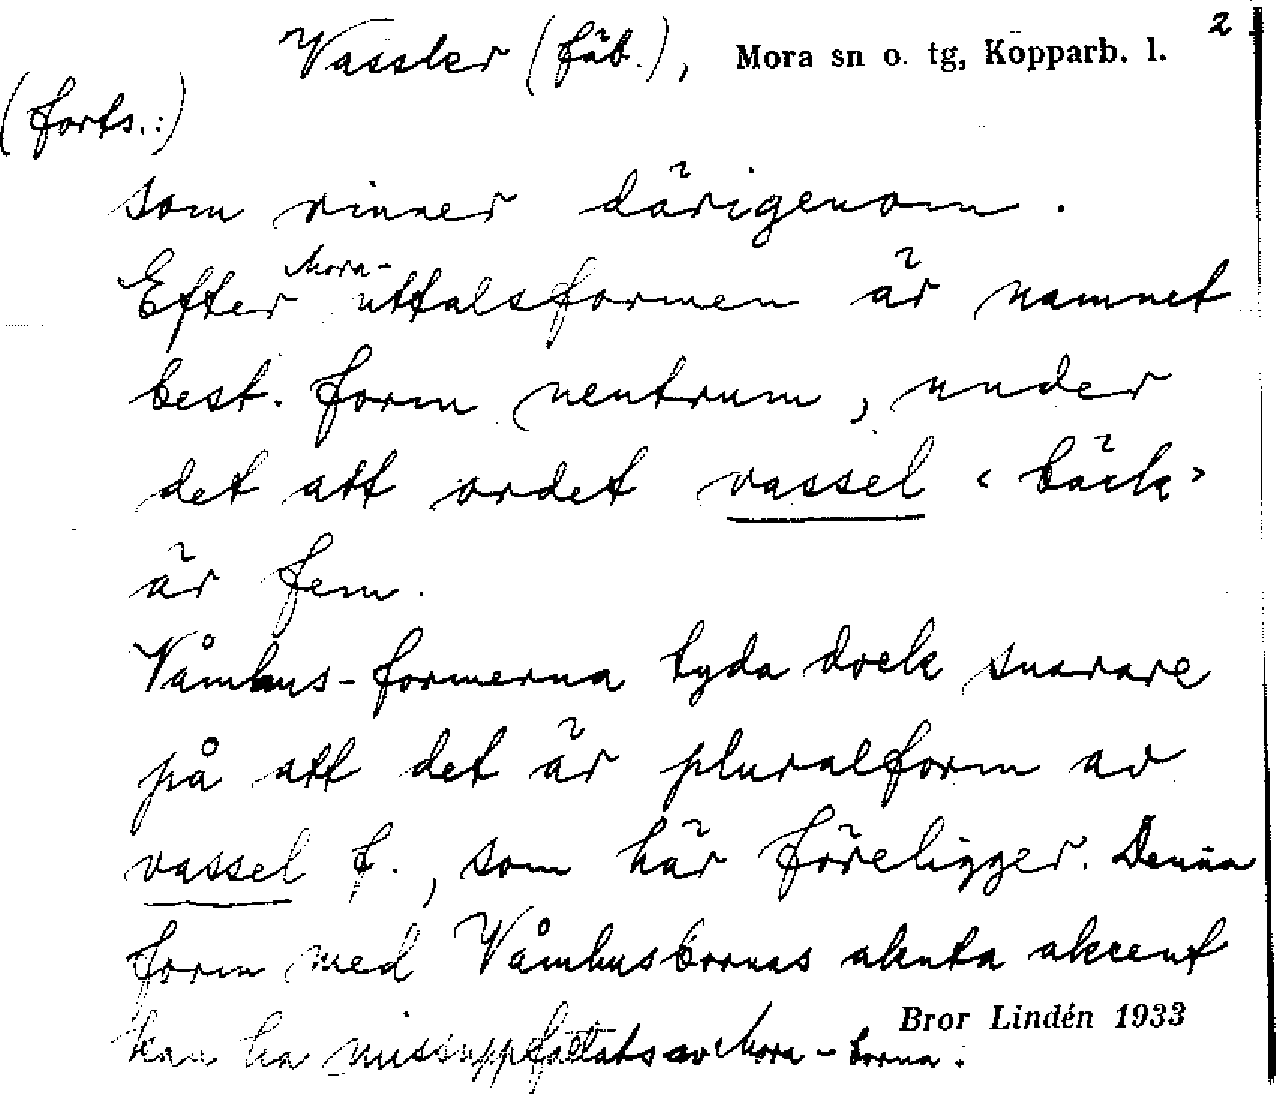 2
Vassler (fäb.), Mora sn o. tg, Kopparb. l.
(forts.:)
som rinner därigenom.
Efter Mora-uttalsformen är namnet
best. form neutrum, under
det att ordet vassel ‹bäck›
är fem.
Våmhus-formerna tyda dock snarare
på att det är pluralform av
vassel f., som här föreligger. Denna
form med Våmhusbornas akuta akcent
kan ha missuppfattats av Mora-borna.
Bror Lindén 1933